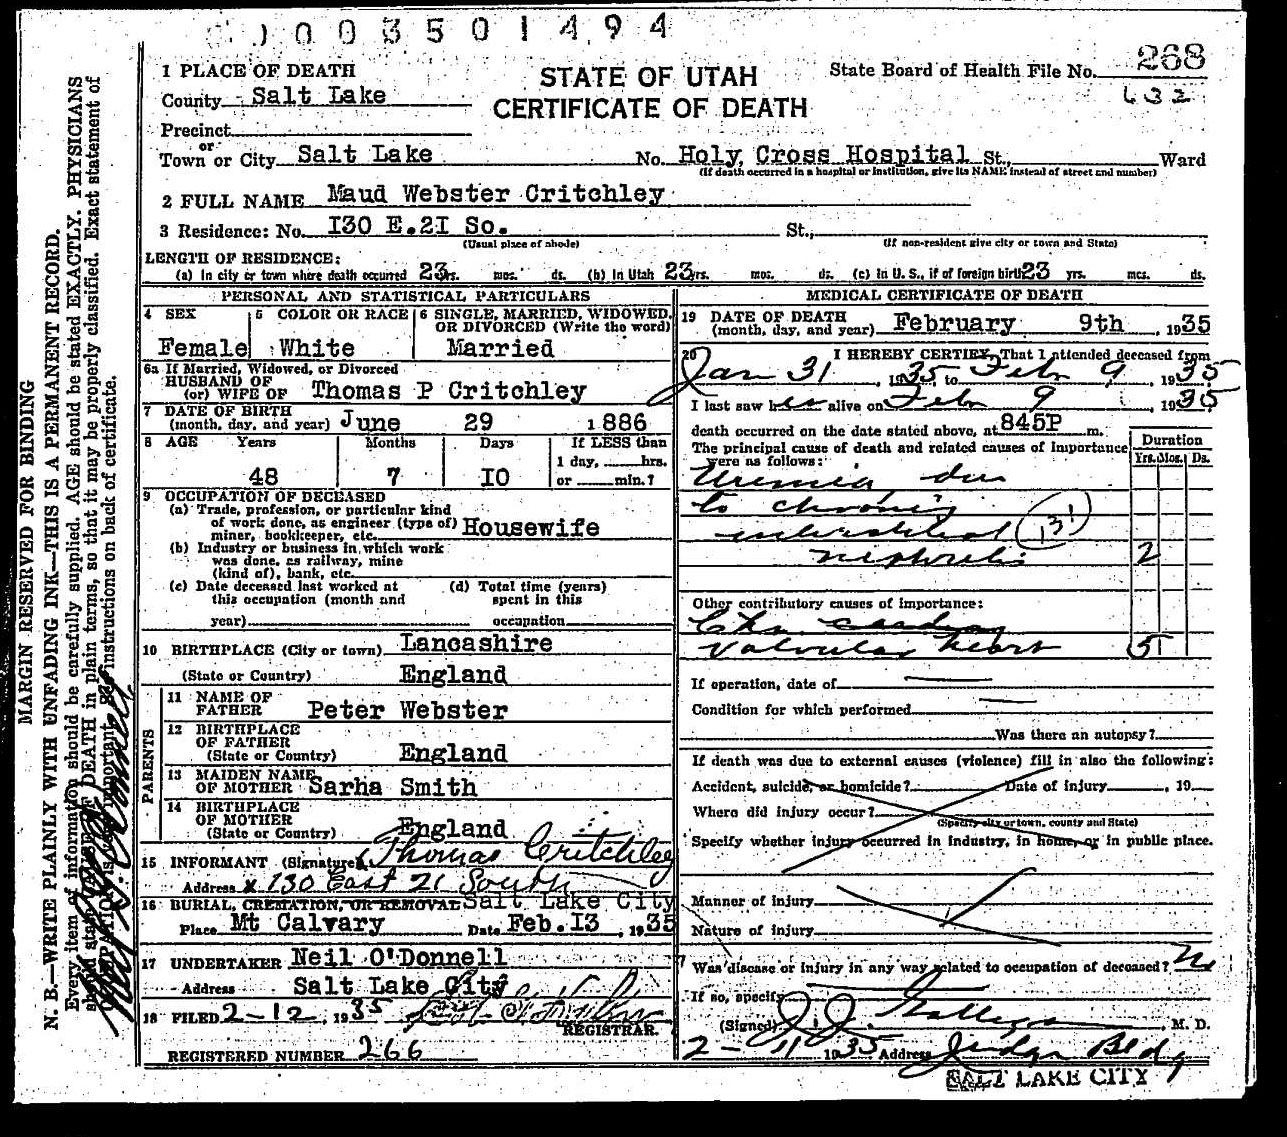 0003501494
1 PLACE OF DEATH
STATE OF UTAH
CERTIFICATE OF DEATH
State Board of Health File No. 268
632
County Salt Lake
Precinct
or
Town or City Salt Lake No. Holy Cross Hospital St., Ward
(If death occurred in a hospital or institution, give its NAME instead of street and number)
2 FULL NAME Maud Webster Critchley
3 Residence: No. I30 E.2I So. St.,
(Usual place of abode) (If non-resident give city or town and State)
LENGTH OF RESIDENCE:
(a) In city or town where death occurred 23 yrs. mos. ds. (b) In Utah 23 yrs. mos. ds. (c) In U. S., if of foreign birth 23 yrs. mos. ds.
PERSONAL AND STATISTICAL PARTICULARS
4 SEX Female
5 COLOR OR RACE White
6 SINGLE, MARRIED, WIDOWED, OR DIVORCED (Write the word) Married
6a If Married, Widowed, or Divorced
HUSBAND OF
(or) WIFE OF Thomas P Critchley
7 DATE OF BIRTH
(month, day, and year) June 29 1886
8 AGE Years Months Days If LESS than
1 day, hrs.
48 7 IO or min.?
9 OCCUPATION OF DECEASED
(a) Trade, profession, or particular kind
of work done, as engineer (type of)
miner, bookkeeper, etc. Housewife
(b) Industry or business in which work
was done, as railway, mine
(kind of), bank, etc.
(c) Date deceased last worked at
this occupation (month and
year)
(d) Total time (years)
spent in this
occupation
10 BIRTHPLACE (City or town) Lancashire
(State or Country) England
PARENTS
11 NAME OF
FATHER Peter Webster
12 BIRTHPLACE
OF FATHER
(State or Country) England
13 MAIDEN NAME
OF MOTHER Sarha Smith
14 BIRTHPLACE
OF MOTHER
(State or Country) England
15 INFORMANT (Signature) Thomas Critchley
Address x 130 East 21 South
16 BURIAL, CREMATION, OR REMOVAL Salt Lake City
Place Mt Calvary Date Feb.I3, 1935
17 UNDERTAKER Neil O'Donnell
Address Salt Lake City
18 FILED 2-12, 1935
REGISTRAR.
REGISTERED NUMBER 266
MEDICAL CERTIFICATE OF DEATH
19 DATE OF DEATH
(month, day, and year) February 9th, 1935
20 I HEREBY CERTIFY, That I attended deceased from
Jan 31, 1935 to Feb 9, 1935
I last saw her alive on Feb 9, 1935
death occurred on the date stated above, at 845P m.
The principal cause of death and related causes of importance
were as follows:
Duration
Yrs. Mos. Ds.
Uremia, due
to chronic
interstitial (131)
nephritis 2
Other contributory causes of importance:
Chr. cardiac
valvular heart 5
If operation, date of
Condition for which performed
Was there an autopsy?
If death was due to external causes (violence) fill in also the following:
Accident, suicide, or homicide? Date of injury, 19
Where did injury occur?
(Specify city or town, county and State)
Specify whether injury occurred in industry, in home, or in public place.
Manner of injury
Nature of injury
Was disease or injury in any way related to occupation of deceased? No
If so, specify
(Signed) J. J. Galligan, M. D.
2-11 1935 Address Judge Bldg
SALT LAKE CITY
MARGIN RESERVED FOR BINDING
N. B.—WRITE PLAINLY WITH UNFADING INK—THIS IS A PERMANENT RECORD.
Every item of information should be carefully supplied. AGE should be stated EXACTLY. PHYSICIANS
should state CAUSE OF DEATH in plain terms, so that it may be properly classified. Exact statement of
OCCUPATION is very important. See instructions on back of certificate.